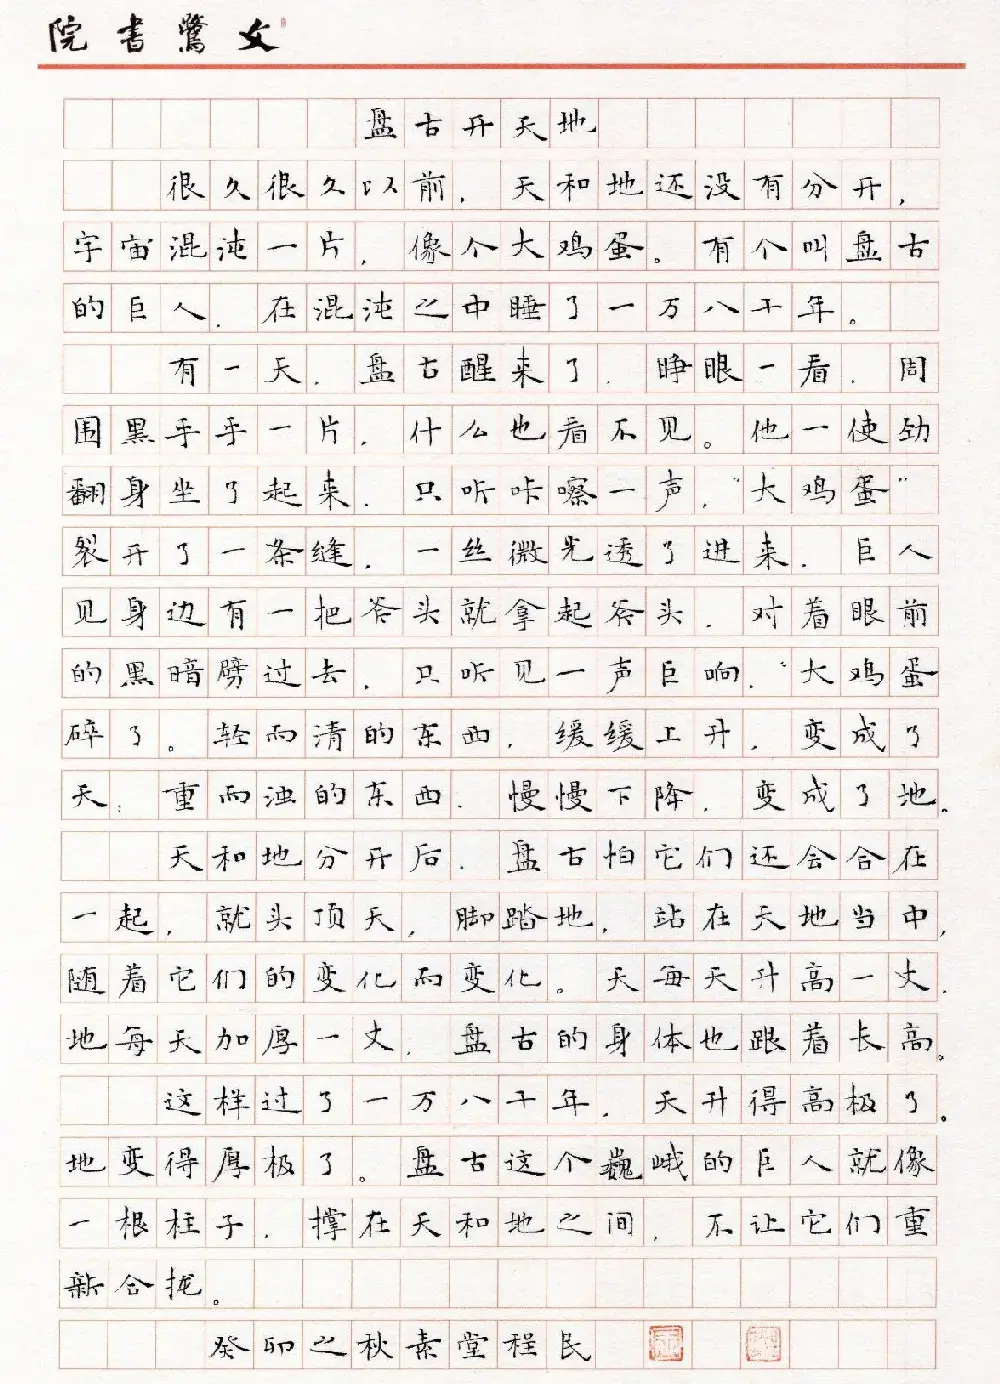 院書驚文
盘古开天地
很久很久以前，天和地还没有分开，
宇宙混沌一片，像个大鸡蛋。有个叫盘古
的巨人，在混沌之中睡了一万八千年。
有一天，盘古醒来了，睁眼一看，周
围黑乎乎一片，什么也看不见。他一使劲
翻身坐了起来，只听咔嚓一声，“大鸡蛋”
裂开了一条缝，一丝微光透了进来，巨人
见身边有一把斧头就拿起斧头，对着眼前
的黑暗劈过去，只听见一声巨响，“大鸡蛋
碎了。轻而清的东西，缓缓上升，变成了
天；重而浊的东西，慢慢下降，变成了地。
天和地分开后，盘古怕它们还会合在
一起，就头顶天，脚踏地，站在天地当中，
随着它们的变化而变化。天每天升高一丈，
地每天加厚一丈，盘古的身体也跟着长高。
这样过了一万八千年，天升得高极了。
地变得厚极了。盘古这个巍峨的巨人就像
一根柱子，撑在天和地之间，不让它们重
新合拢。
癸卯之秋素堂程民